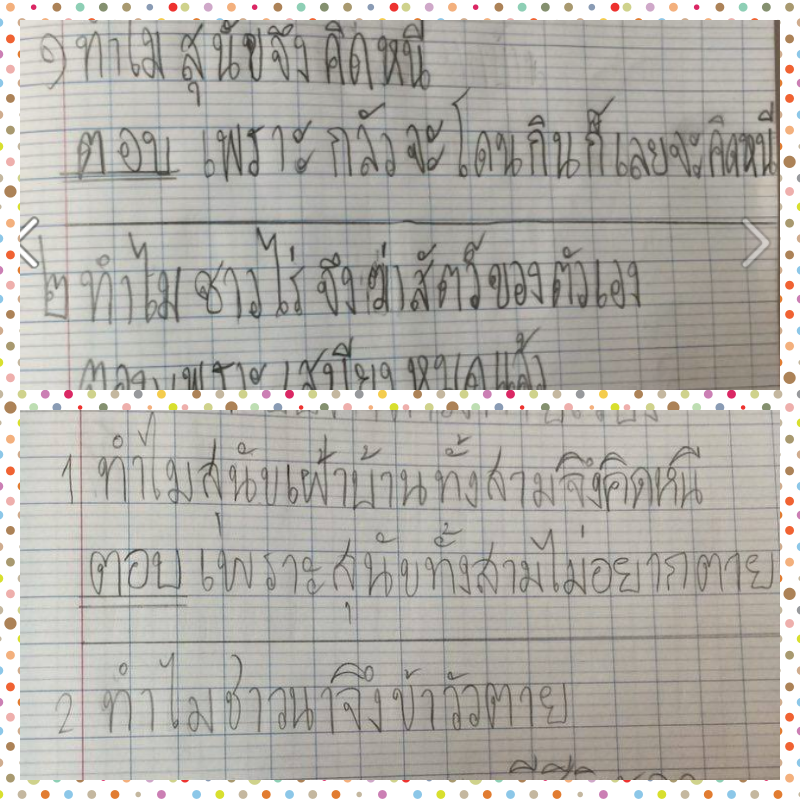 ๑ ทำไม สุนัขจึง คิดหนี
ตอบ เพราะ กลัว จะ โดน กิน ก็ เลยจะคิดหนี
๒ ทำไม ชาวไร่ จึงฆ่าสัตว์ของตัวเอง
ตอบ เพราะ เสบียง หมดแล้ว
1 ทำไมสนัขเฝ้าบ้านทั้งสามจึงคิดหนี
ตอบ เพราะสุนัขทั้งสามไม่อยากตาย
2 ทำไมชาวนาจึงฆ่าวัวตาย